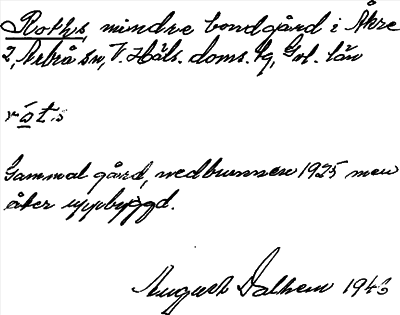 Roths, mindre bondgård i Åkre
2, Arbrå sn, V. Häls. doms. sg, Gvl. län
rω̄t.s
Gammal gård, nedbrunnen 1925 men
åter uppbyggd.
August Dalhem 1943